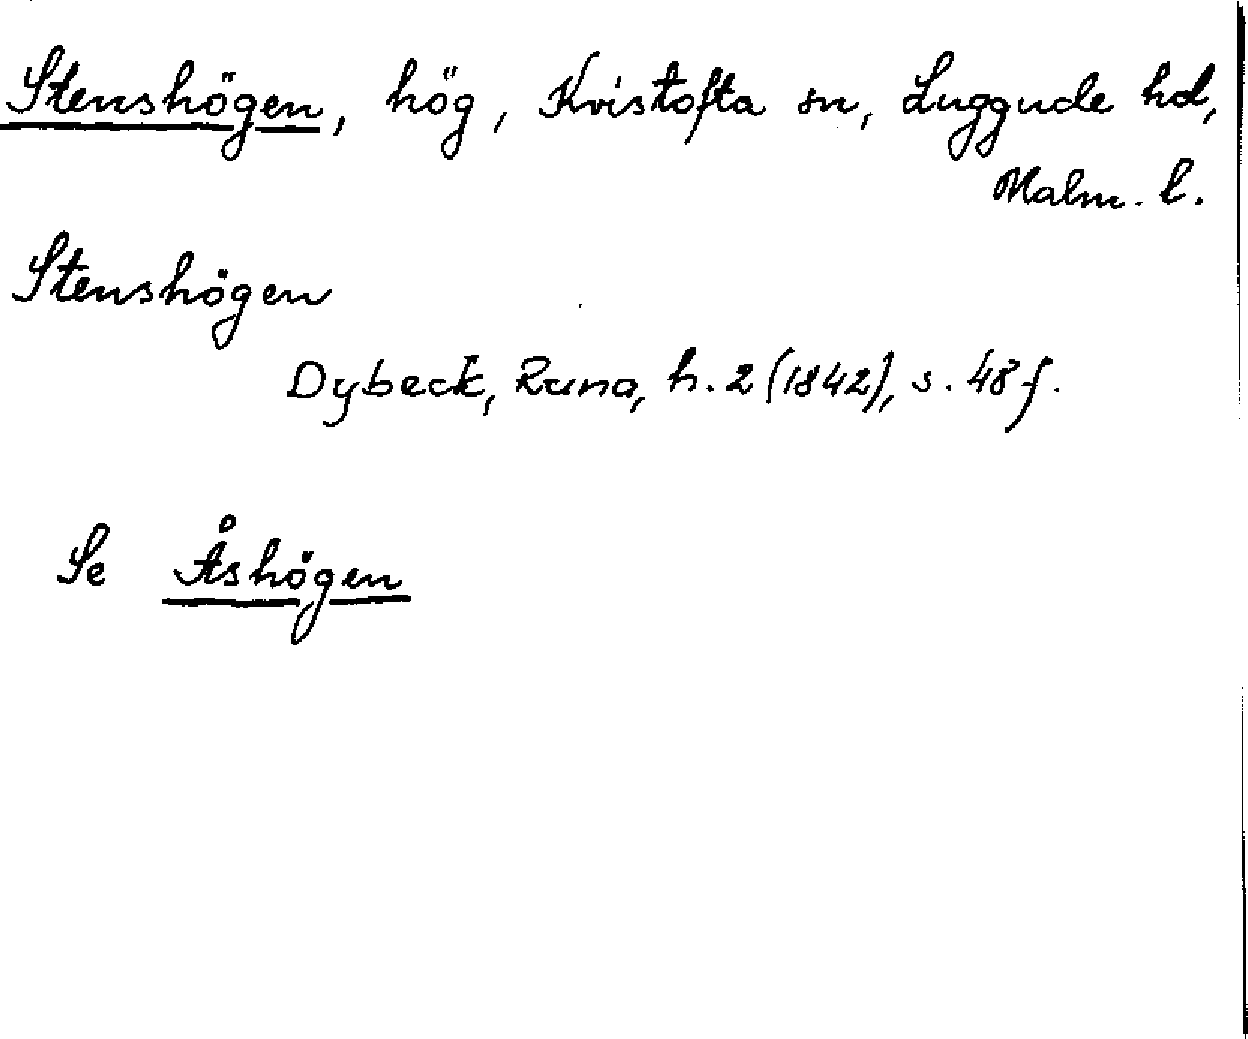 Stenshögen, hög, Kvistofta sn, Luggude hd,
Malm. l.
Stenshögen
Dybeck, Runa, h. 2 (1842), s. 48 f.
Se Åshögen